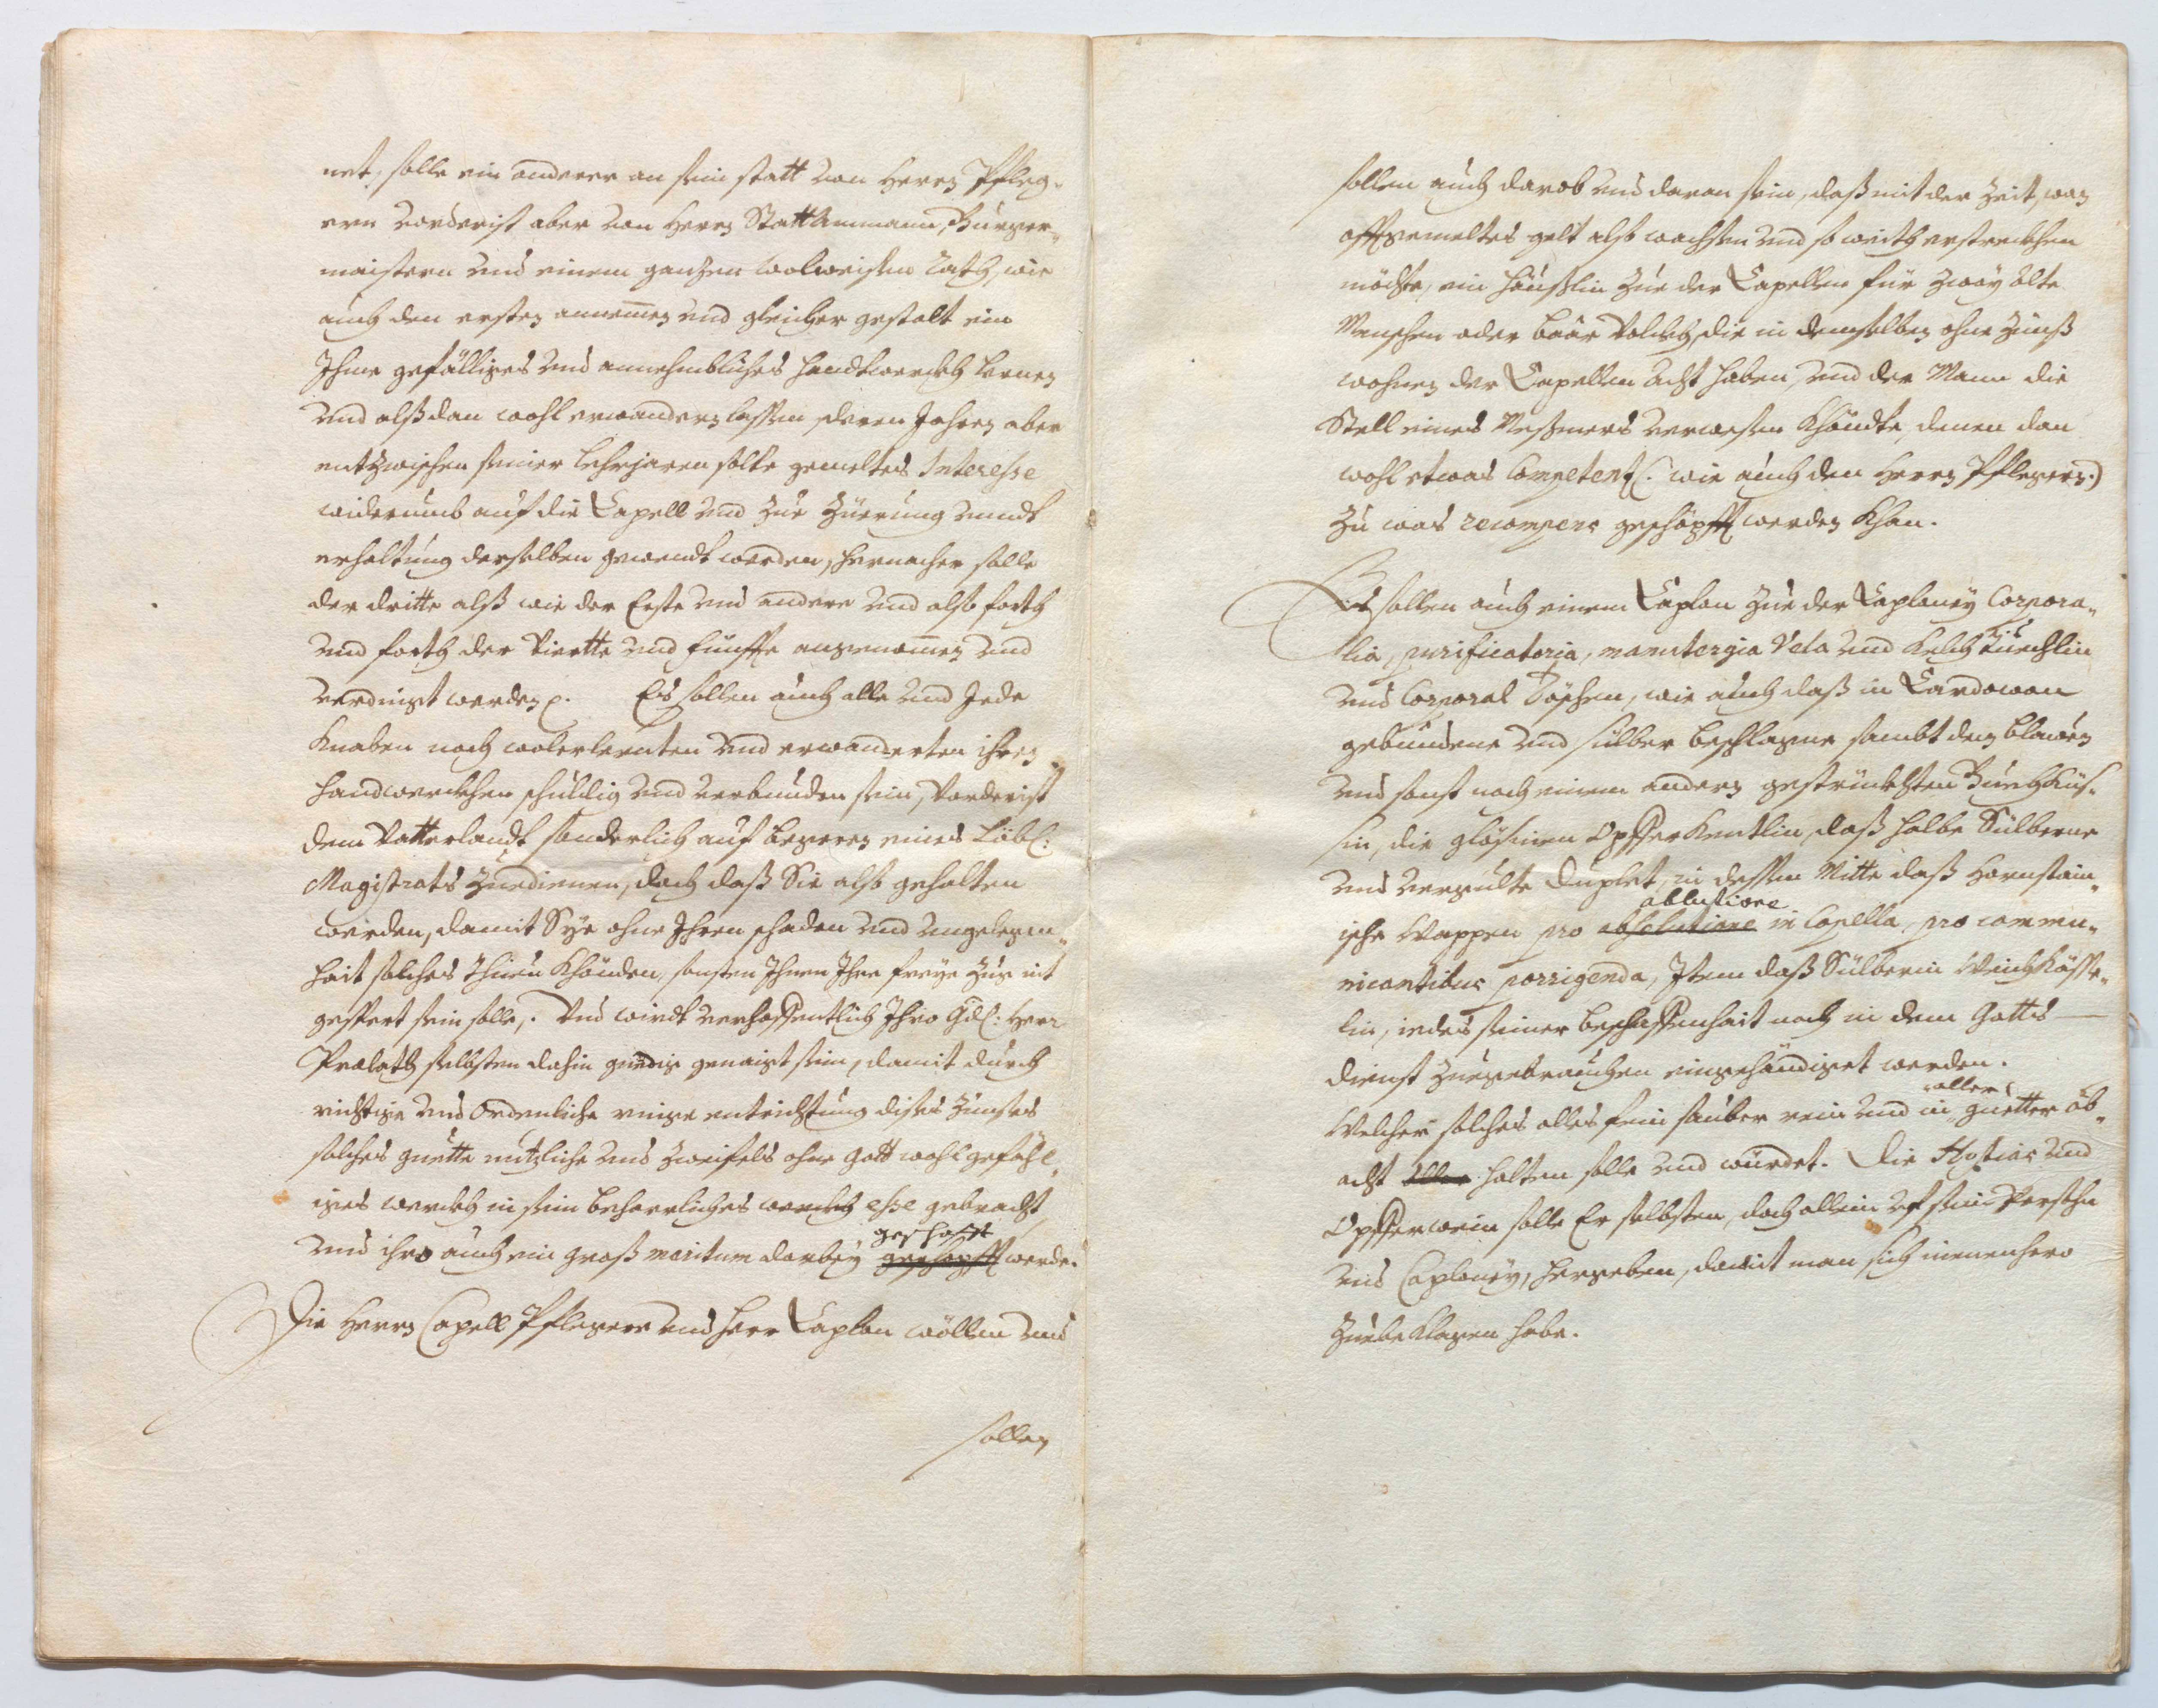 net, solle ein anderer an sein statt von Herrn Pfleg„
ern vorderist aber von Herrn Stattammann, Burger„
maistern und einem ganzen wolweisen Rath, wie
auch den ersten annemen und gleicher gestalt ein
Ihme gefälliges und annehmbliches handtwerckh lernen
und alßdan wohl erwandern lassen, deren Jahren aber
entzwischen seiner Lehrjaren solte gemeltes Interesse
widerumb auf die Capell und zue Zierung unndt
erhaltung derselben gewendt werden, hernacher solle
der dritte alß wie der Erste und andere und also forth
und forth der Viertte und fünffte angenomen und
verdingt werden. Es sollen auch alle und Jede
Knaben nach wolerlernten und erwanderten ihren
handwerckhen schuldig und verbunden sein, vorderist
dem Vatterlandt sonderlich auf begeren eines Löbl:
Magistrats zuedienen, doch daß Sie also gehalten
werden, damit Sye ohne Ihren schaden und ungelegen„
hait solches thuen khönden, sonsten Ihnen Ihre freye Zug nit
gespert sein solle. Und wirdt verhoffentlich Ihro Gdl: Herr
Prælath selbsten dahin gnedig genaigt sein, damit durch
richtige und ordenliche einge entrichtung dises Zinses
solches guette nutzliche und zweifels ohne Gott wohlgefähl„
iges werckh in sein beharrliches werckh esse gebracht
und ihro auch ein groß meritum darbey gescháfft geschöpfft werde.
Die Herrn Capell Pflegere und Herr Caplan wöllen und
sollen
sollen auch darob und daran sein, daß mit der Zeit, wan
offtgemeltes gelt also wachsen und so weith erstreckhen
möchte, ein Häußlin zue der Capellen für zway alte
Menschen oder baar Volckh, die in demselben ohne Zinß
wohnen der Capellen acht haben, und der Mann die
Stell eines Meßmers verwesen khöndte, denen dan
wohl etwas Competenz wie auch den Herrn Pflegern)
zu was recompens geschöpfft werden khan.
Es sollen auch einem Caplan zue der Caplaney Corpora„
lia, purificatoria, manutergia Vela und Kelch Tüechlin
und Corporal Däschen, wie auch daß in Cardowan
gebundene und silber beschlagene sambt den blauen
und sonst noch einem andern gestrückhten Buechküs„
sin, die gläsinen Opffer Kentlin, daß halbe Silberne
und vergulte Duplet, in dessen Mitte daß Hornstain„
ische Wappen pro absolutione ablutione in Capella, pro commu„
nicantibus porrigenda, Item daß Silberin Weich Kösse„
lin, iedes seiner beschaffenhait nach in dem Gotts
dienst zuegebrauchen eingehändiget werden.
Welcher solches alles fein sauber rein und in aller guetter ob„
acht aller halten solle und würdet. Die Hostias und
Opfferwein solle Er selbsten, doch allein uf sein Persohn
und Caplaney, hergeben, damit man sich nienenhero
zuebeklagen habe.